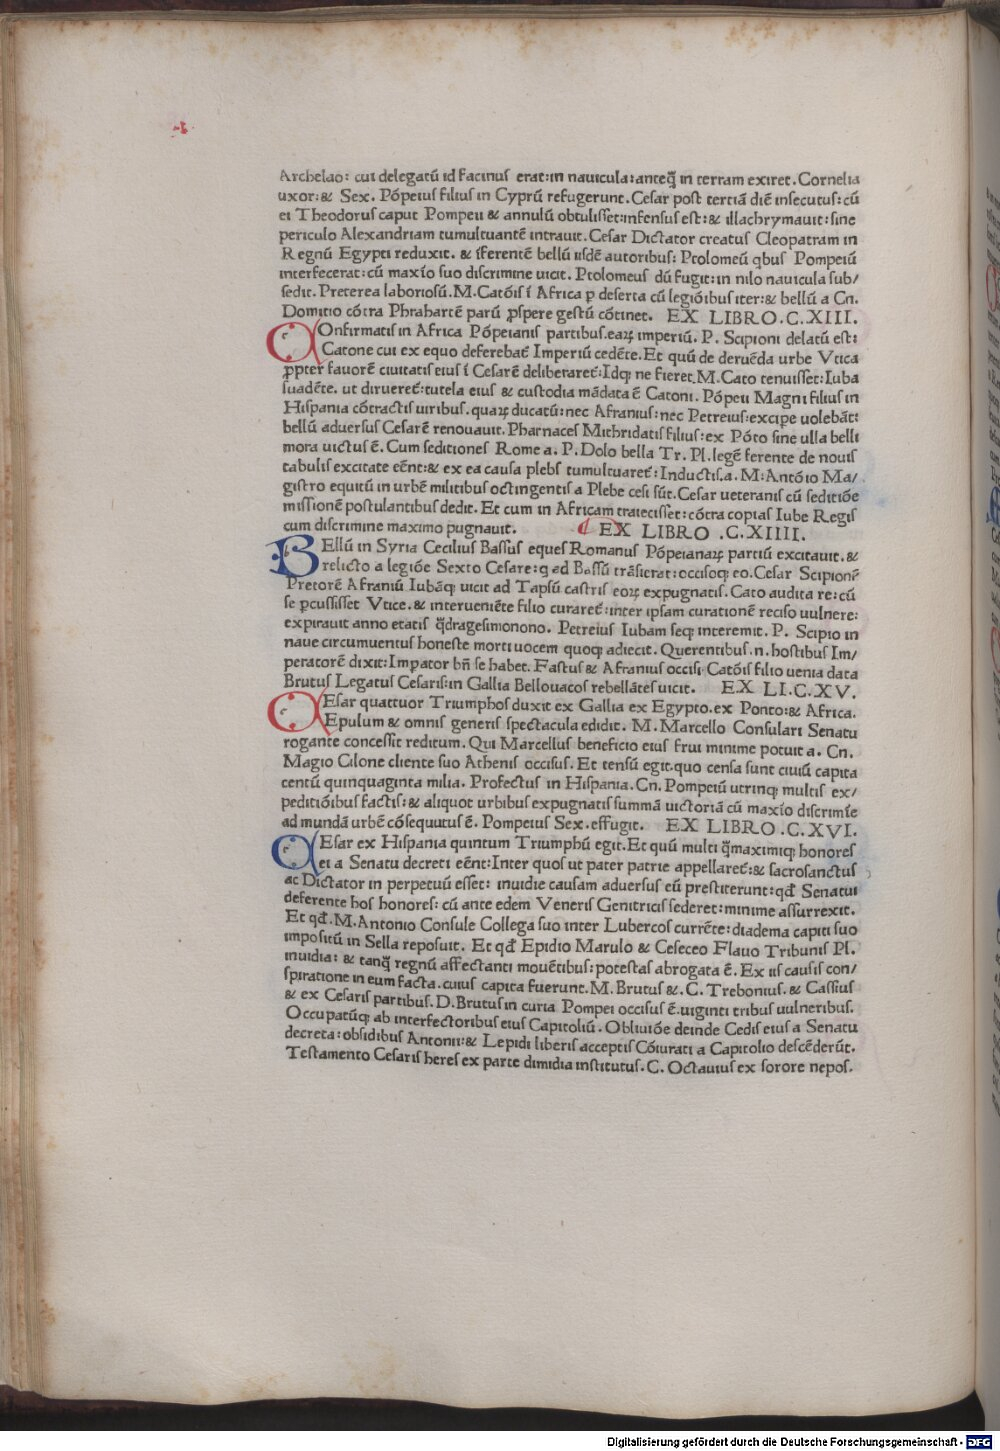 Archelao: cui delegatū id facinus erat: in nauicula: anteq̃ in terram exiret. Cornelia
uxor: & Sex. Pōpeius filius in Cyprū refugerunt. Cesar post tertiā diē insecutus: cū
ei Theodorus caput Pompeii & annulū obtulisset: infensus est: & illachrymauit: sine
periculo Alexandriam tumultuantē intrauit. Cesar Dictator creatus Cleopatram in
Regnū Egypti reduxit. & īferentē bellū iisdē autoribus: Ptolomeū qbus Pompeiū
interfecerat: cū maxīo suo discrimine uicit. Ptolomeus dū fugit: in nilo nauicula sub/
sedit. Preterea laboriosū. M. Catōis ī Africa p deserta cū legiōibus iter: & bellū a Cn.
Domitio cōtra Phrahartē parū ꝓspere gestū cōtinet. EX LIBRO. C. XIII.
COnfirmatis in Africa Pōpeianis partibus. eaꝝ imperiū. P. Scipioni delatū est:
Catone cui ex equo deferebat̃ Imperiū cedēte. Et quū de deruēda urbe Vtica
ꝓpter fauorē ciuitatis eius ī Cesarē deliberaret̃: Idq; ne fieret. M. Cato tenuisset: Iuba
suadēte. ut dirueret̃: tutela eius & custodia mādata ē Catoni. Pōpeii Magni filius in
Hispania cōtractis uiribus. quaꝝ ducatū: nec Afranius: nec Petreius: excipe uolebāt:
bellū aduersus Cesarē renouauit. Pharnaces Mithridatis filius: ex Pōto sine ulla belli
mora uictus ē. Cum seditiones Rome a. P. Dolo bella Tr. Pl. legē ferente de nouis
tabulis excitate eēnt: & ex ea causa plebs tumultuaret̃: Inductis. a. M: Antōio Ma/
gistro equitū in urbē militibus octingentis a Plebe cesi sūt. Cesar ueteranis cū seditiōe
missionē postulantibus dedit. Et cum in Africam traiecisset: cōtra copias Iube Regis
cum discrimine maximo pugnauit. EX LIBRO .C. XIIII.
BEllū in Syria Cecilius Bassus eques Romanus Pōpeianaꝝ partiū excitauit. &
relicto a legiōe Sexto Cesare: q ad Bassū trāsierat: occisoq; eo. Cesar Scipionē
Pretorē Afraniū Iubāq; uicit ad Tapsū castris eoꝝ expugnatis. Cato audita re: cū
se pcussisset Vtice. & interueniēte filio curaret̃: inter ipsam curationē reciso uulnere:
expirauit anno etatis q̃dragesimonono. Petreius Iubam seq; interemit. P. Scipio in
naue circumuentus honeste morti uocem quoq; adiecit. Querentibus. n. hostibus Im/
peratorē dixit: Impator bñ se habet. Faustus & Afranius occisi. Catōis filio uenia data
Brutus Legatus Cesaris: in Gallia Bellouacos rebellātes uicit. EX LI. C. XV.
CEsar quattuor Triumphos duxit ex Gallia ex Egypto. ex Ponto: & Africa.
Epulum & omnis generis spectacula edidit. M. Marcello Consulari Senatu
rogante concessit reditum. Qui Marcellus beneficio eius frui minime potuit a. Cn.
Magio Cilone cliente suo Athenis occisus. Et tensū egit. quo censa sunt ciuiū capita
centū quinquaginta milia. Profectus in Hispania. Cn. Pompeiū utrinq; multis ex/
peditiōibus factis: & aliquot urbibus expugnatis summā uictoriā cū maxīo discrimīe
ad mundā urbē cōsequutus ē. Pompeius Sex. effugit. EX LIBRO. C. XVI.
CEsar ex Hispania quintum Triumphū egit. Et quū multi q̃maximiq; honores
ei a Senatu decreti eēnt: Inter quos ut pater patrie appellaret̃: & sacrosanctus
ac Dictator in perpetuū esset: inuidie causam aduersus eū prestiterunt: qđ Senatui
deferente hos honores: cū ante edem Veneris Genitricis sederet: minime assurrexit.
Et qđ. M. Antonio Consule Collega suo inter Lubercos currēte: diadema capiti suo
impositū in Sella reposuit. Et qđ Epidio Marulo & Ceseceo Flauo Tribunis Pl.
inuidia: & tanq̃ regnū affectanti mouētibus: potestas abrogata ē. Ex iis causis con/
spiratione in eum facta. cuius capita fuerunt. M. Brutus &. C. Trebonius. & Cassius
& ex Cesaris partibus. D. Brutus in curia Pompei occisus ē. uiginti tribus uulneribus.
Occupatūq; ab interfectoribus eius Capitoliū. Obliuiōe deinde Cedis eius a Senatu
decreta: obsidibus Antonii: & Lepidi liberis acceptis Cōiurati a Capitolio descēderūt.
Testamento Cesaris heres ex parte dimidia institutus. C. Octauius ex sorore nepos.
Digitalisierung gefördert durch die Deutsche Forschungsgemeinschaft - DFG